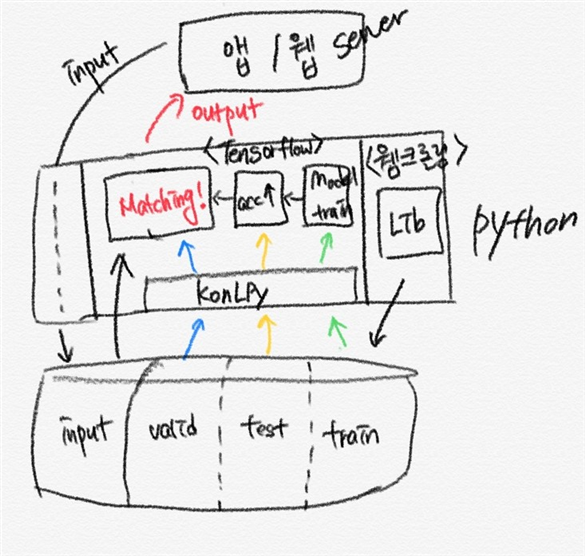 input
앱 / 웹 server
output
<Tensorflow>
<웹크롤링>
Matching!
acc↑
Model
train
Lib
python
KonLPy
input
valid
test
train